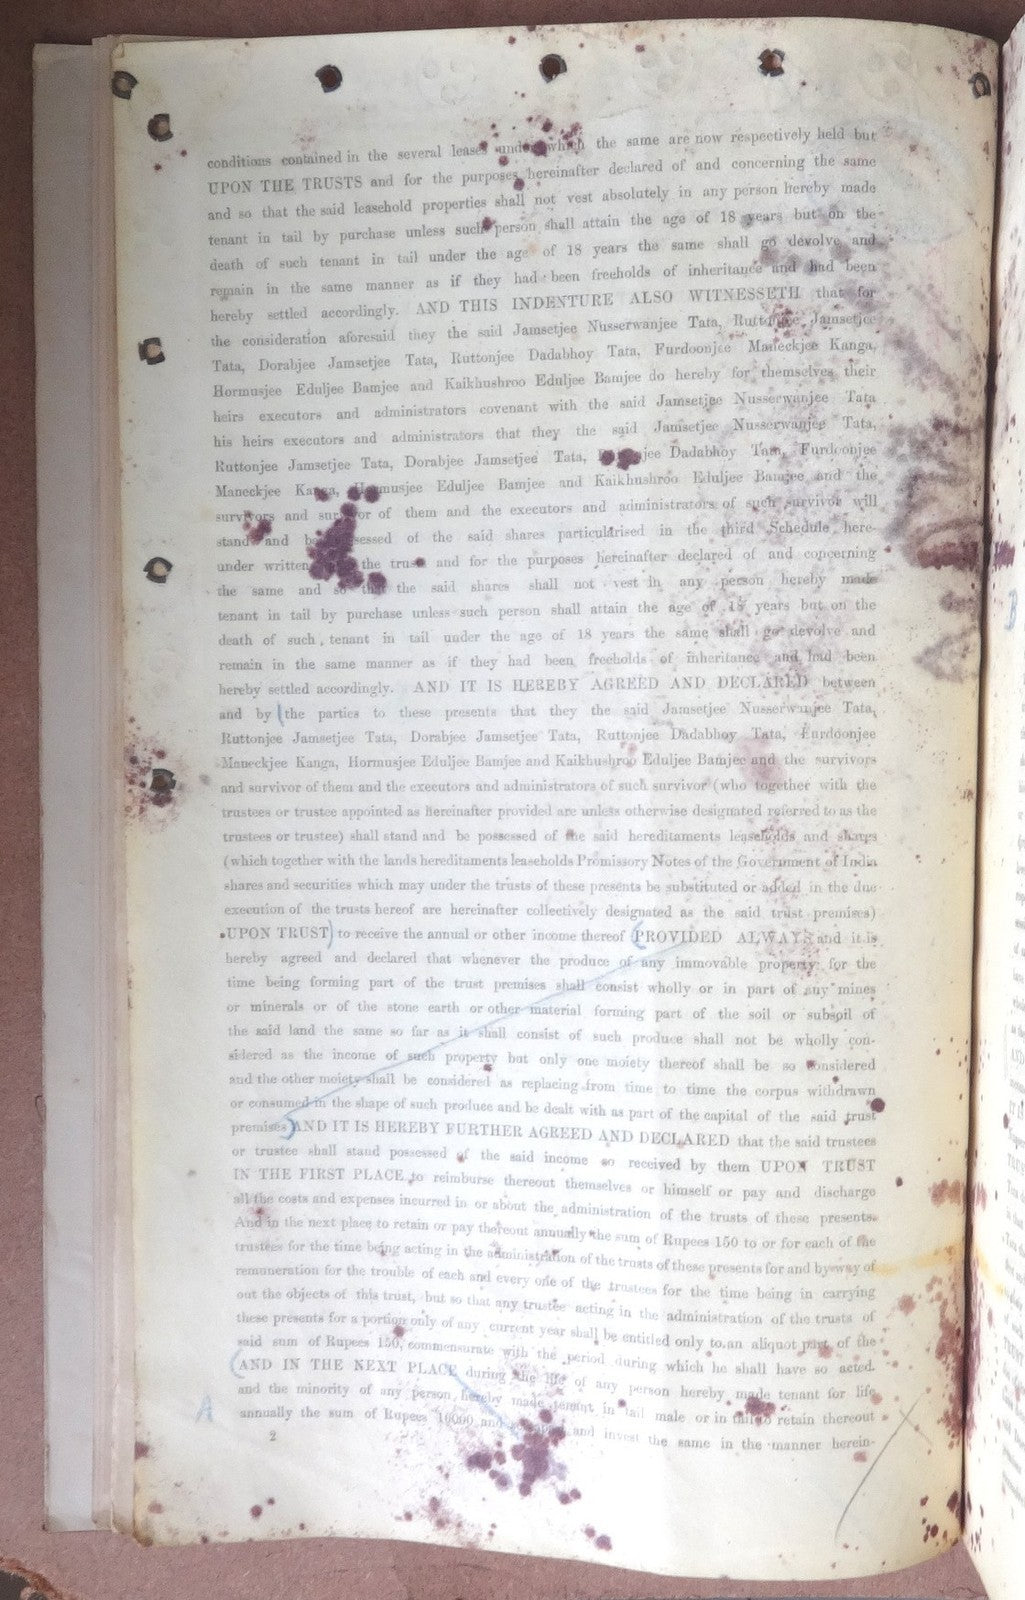 conditions contained in the several leases under which the same are now respectively held but
UPON THE TRUSTS and for the purposes hereinafter declared of and concerning the same
and so that the said leasehold properties shall not vest absolutely in any person hereby made
tenant in tail by purchase unless such person shall attain the age of 18 years but on the
death of such tenant in tail under the age of 18 years the same shall go devolve and
remain in the same manner as if they had been freeholds of inheritance and had been
hereby settled accordingly. AND THIS INDENTURE ALSO WITNESSETH that for
the consideration aforesaid they the said Jamsetjee Nusserwanjee Tata, Ruttonjee Jamsetjee
Tata, Dorabjee Jamsetjee Tata, Ruttonjee Dadabhoy Tata, Furdoonjee Maneckjee Kanga,
Hormusjee Eduljee Bamjee and Kaikhushroo Eduljee Bamjee do hereby for themselves their
heirs executors and administrators covenant with the said Jamsetjee Nusserwanjee Tata
his heirs executors and administrators that they the said Jamsetjee Nusserwanjee Tata,
Ruttonjee Jamsetjee Tata, Dorabjee Jamsetjee Tata, jee Dadabhoy Tata, Furdoonjee
Maneckjee Kanga, Hormusjee Eduljee Bamjee and Kaikhushroo Eduljee Bamjee and the
survivors and survivor of them and the executors and administrators of such survivor will
stand and be sessed of the said shares particularised in the third Schedule here-
under written the trusts and for the purposes hereinafter declared of and concerning
the same and so that the said shares shall not vest in any person hereby made
tenant in tail by purchase unless such person shall attain the age of 18 years but on the
death of such tenant in tail under the age of 18 years the same shall go devolve and
remain in the same manner as if they had been freeholds of inheritance and had been
hereby settled accordingly. AND IT IS HEREBY AGREED AND DECLARED between
and by (the parties to these presents that they the said Jamsetjee Nusserwanjee Tata,
Ruttonjee Jamsetjee Tata, Dorabjee Jamsetjee Tata, Ruttonjee Dadabhoy Tata, Furdoonjee
Maneckjee Kanga, Hormusjee Eduljee Bamjee and Kaikhushroo Eduljee Bamjee and the survivors
and survivor of them and the executors and administrators of such survivor (who together with the
trustees or trustee appointed as hereinafter provided are unless otherwise designated referred to as the
trustees or trustee) shall stand and be possessed of the said hereditaments leaseholds and shares
(which together with the lands hereditaments leaseholds Promissory Notes of the Government of India
shares and securities which may under the trusts of these presents be substituted or added in the due
execution of the trusts hereof are hereinafter collectively designated as the said trust premises)
UPON TRUST) to receive the annual or other income thereof (PROVIDED ALWAYS and it is
hereby agreed and declared that whenever the produce of any immovable property for the
time being forming part of the trust premises shall consist wholly or in part of any mines
or minerals or of the stone earth or other material forming part of the soil or subsoil of
the said land the same so far as it shall consist of such produce shall not be wholly con-
sidered as the income of such property but only one moiety thereof shall be so considered
and the other moiety shall be considered as replacing from time to time the corpus withdrawn
or consumed in the shape of such produce and be dealt with as part of the capital of the said trust
premises) AND IT IS HEREBY FURTHER AGREED AND DECLARED that the said trustees
or trustee shall stand possessed of the said income so received by them UPON TRUST
IN THE FIRST PLACE to reimburse thereout themselves or himself or pay and discharge
all the costs and expenses incurred in or about the administration of the trusts of these presents
And in the next place to retain or pay thereout annually the sum of Rupees 150 to or for each of the
trustees for the time being acting in the administration of the trusts of these presents for and by way of
remuneration for the trouble of each and every one of the trustees for the time being in carrying
out the objects of this trust, but so that any trustee acting in the administration of the trusts of
these presents for a portion only of any current year shall be entitled only to an aliquot part of the
said sum of Rupees 150, commensurate with the period during which he shall have so acted.
(AND IN THE NEXT PLACE during the life of any person hereby made tenant for life
and the minority of any person hereby made tenant in tail male or in tail to retain thereout
A annually the sum of Rupees 10000 and and invest the same in the manner herein-
2
B